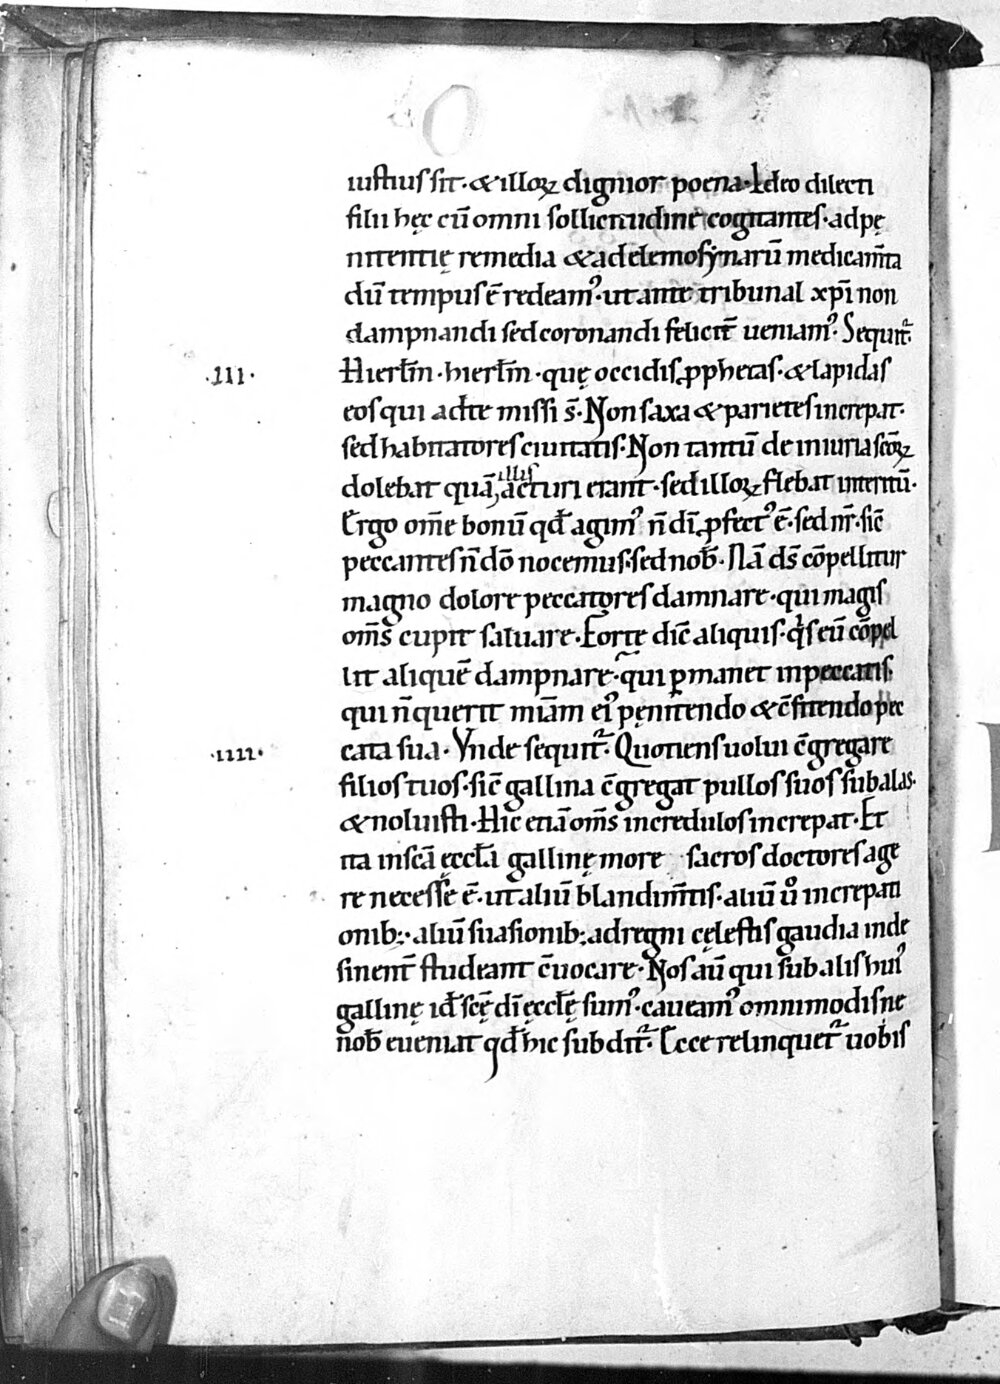 iustius sit· &illoꝝ dignior poena· Ideo dilecti
filii hęc cū omni sollicitudine cogitantes· ad pę
nitentię remedia & ad elemosẏnarū medicam̄ta
dū tempus ē redeam᾿· ut ante tribunal xp̄i non
dampnandi sed coronandi felicit̄ ueniam᾿· Sequit᷑·
·III· Hierłm· hierłm· quę occidis ꝓphetas· & lapidas
eos qui ad te missi s̄· Non saxa & parietes increpat·
sed habitatores ciuitatis· Non tantū de iniuria sc̄oꝝ
dolebat quā illis acturi erant· sed illoꝝ flebat interitū·
Ergo om̄e bonū qđ agim᾿ n̄ dī ꝓfect᾿ ē· sed nr̄· sic̄
peccantes n̄ dō nocemus· sed nob̄· Nā ds̄ cōpellitur
magno dolore peccatores damnare· qui magis
om̄s cupit saluare· Forte dic̄ aliquis· q̇s eū cōpel
lit aliquē dampnare· qui ꝑmanet in peccatis·
qui n̄ querit miā̄m ei᾿ pęnitendo & c̄fitendo pec
·IIII· cata sua· Vnde sequit᷑· Quotiens uolui c̄gregare
filios tuos· sic̄ gallina c̄gregat pullos suos sub alas·
& noluisti· Hic etiā om̄s incredulos increpat· Et
ita in sc̄a ęccła gallinę more sacros doctores age
re necesse ē· ut aliū blandim̄tis· aliū ů increpati
onib;· aliū suasionib; ad regni cęlestis gaudia inde
sinent̄ studeant c̄uocare· Nos aū qui sub alis hui᾿
gallinę id̄ sc̄ę dī ęccłę sum᾿· caueam᾿ omnimodis ne
nob̄ eueniat qđ hic subdit᷑· Ecce relinquet᷑ uobis